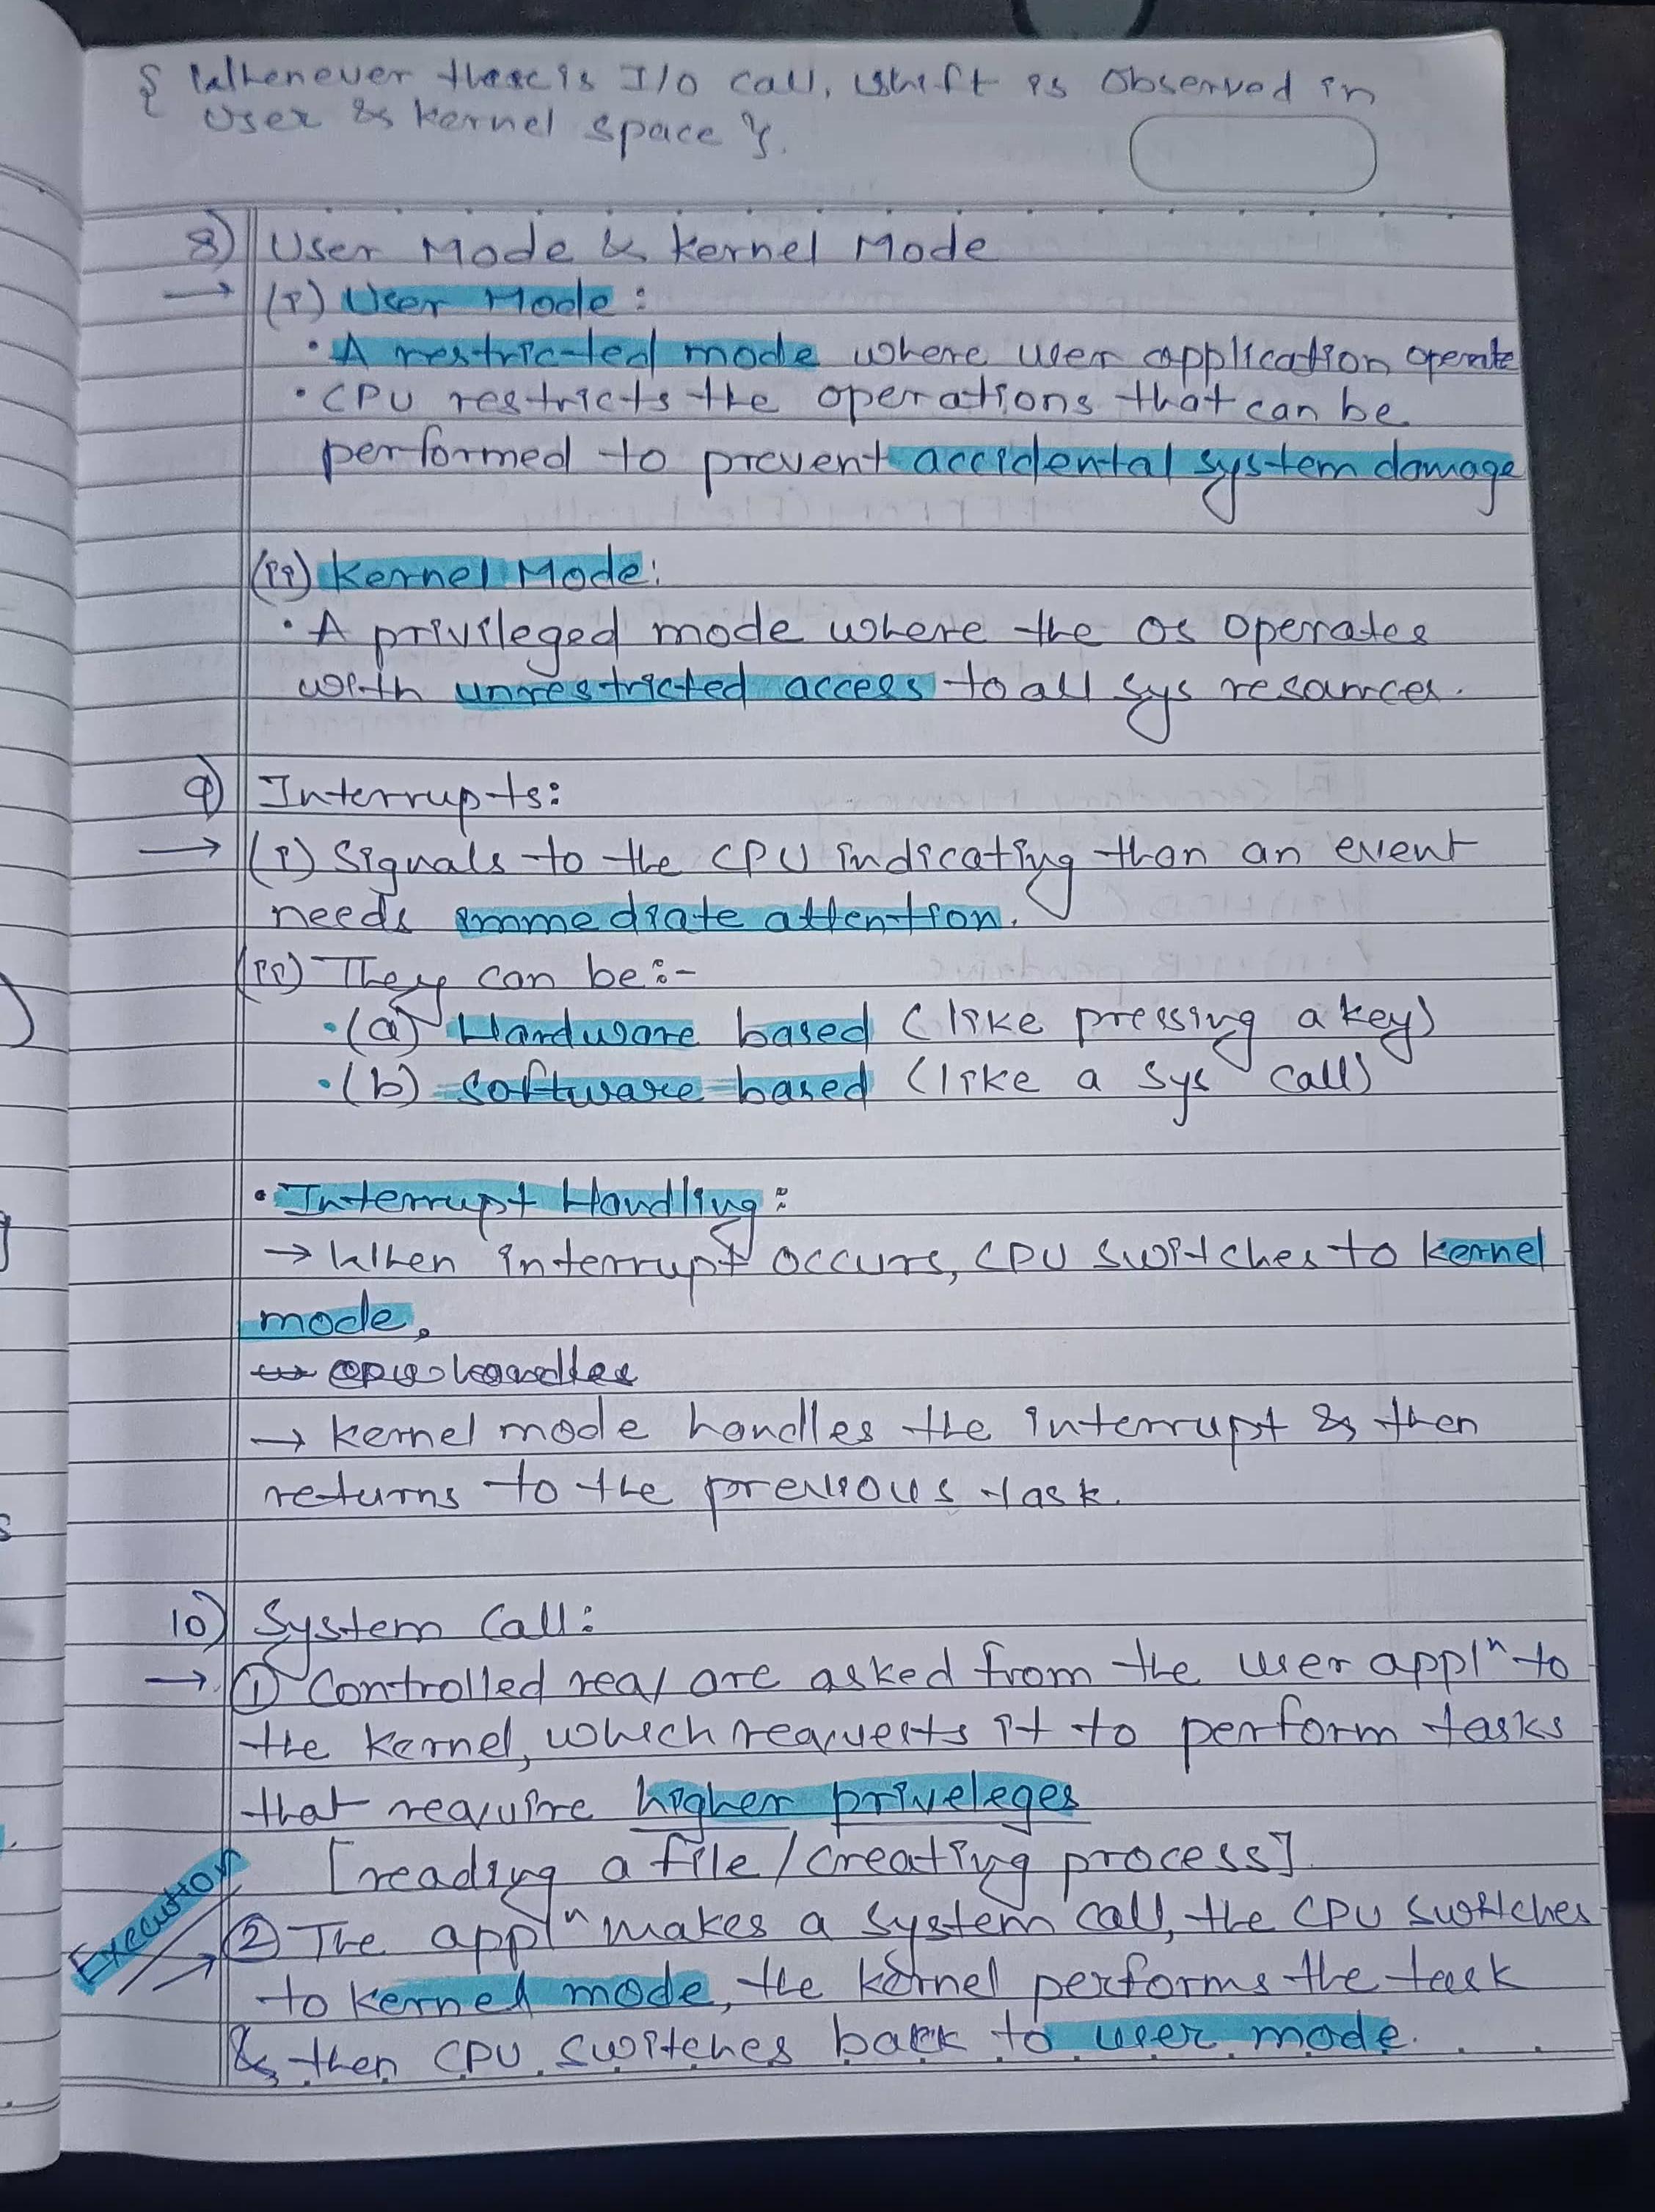 { Whenever there is I/O call, shift is observed in
User & kernel space }.
8) User Mode & kernel Mode
→ (i) User Mode :
• A restricted mode where user application operate
• CPU restricts the operations that can be
performed to prevent accidental system damage
(ii) Kernel Mode:
• A privileged mode where the OS operates
with unrestricted access to all sys resources.
9) Interrupts:
→ (i) Signals to the CPU indicating than an event
needs immediate attention.
(ii) They can be :-
• (a) Hardware based (like pressing a key)
• (b) software based (like a sys call)
• Interrupt Handling :
→ When interrupt occurs, CPU switches to kernel
mode.
→ cpu handles
→ kernel mode handles the interrupt & then
returns to the previous task.
10) System Call :
→ ① Controlled req are asked from the user applⁿ to
the kernel, which requests it to perform tasks
that require higher priveleges
[reading a file / creating process]
Execution
→ ② The applⁿ makes a system call, the CPU switches
to kernel mode, the kernel performs the task
& then CPU switches back to user mode.